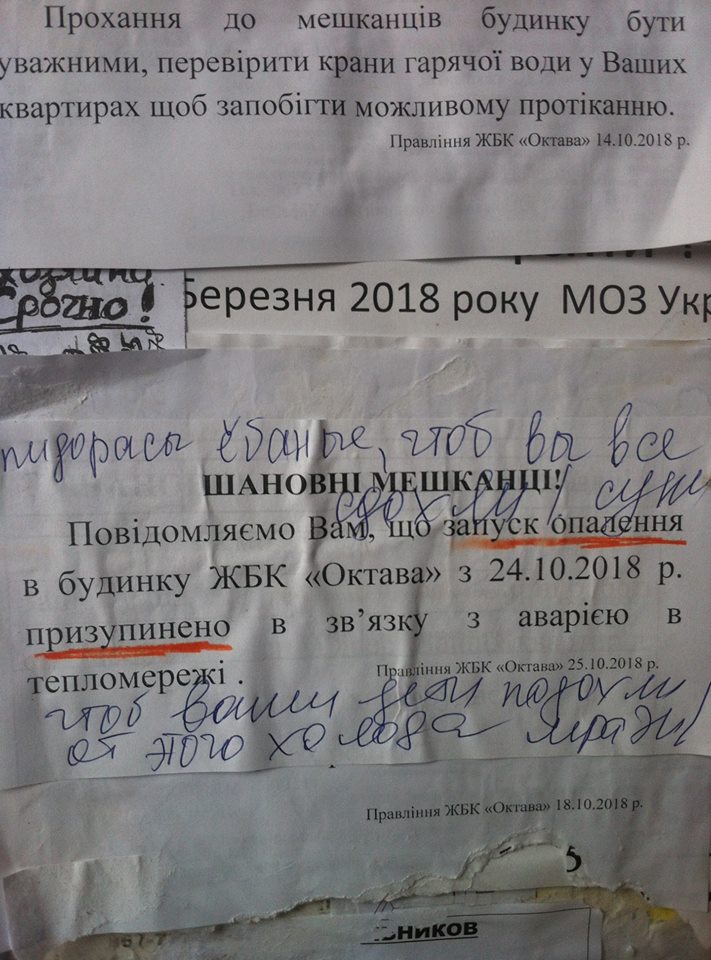 Прохання до мешканців будинку бути
уважними, перевірити крани гарячої води у Ваших
квартирах щоб запобігти можливому протіканню.
Правління ЖБК «Октава» 14.10.2018 р.
Срочно!
Березня 2018 року МОЗ Укр
пидорасы ёбаные, чтоб вы все
сдохли! суки
ШАНОВНІ МЕШКАНЦІ!
Повідомляємо Вам, що запуск опалення
в будинку ЖБК «Октава» з 24.10.2018 р.
призупинено в зв’язку з аварією в
тепломережі .
Правління ЖБК «Октава» 25.10.2018 р.
чтоб ваши дети подохли
от этого холода мрази!
Правління ЖБК «Октава» 18.10.2018 р.
ьников